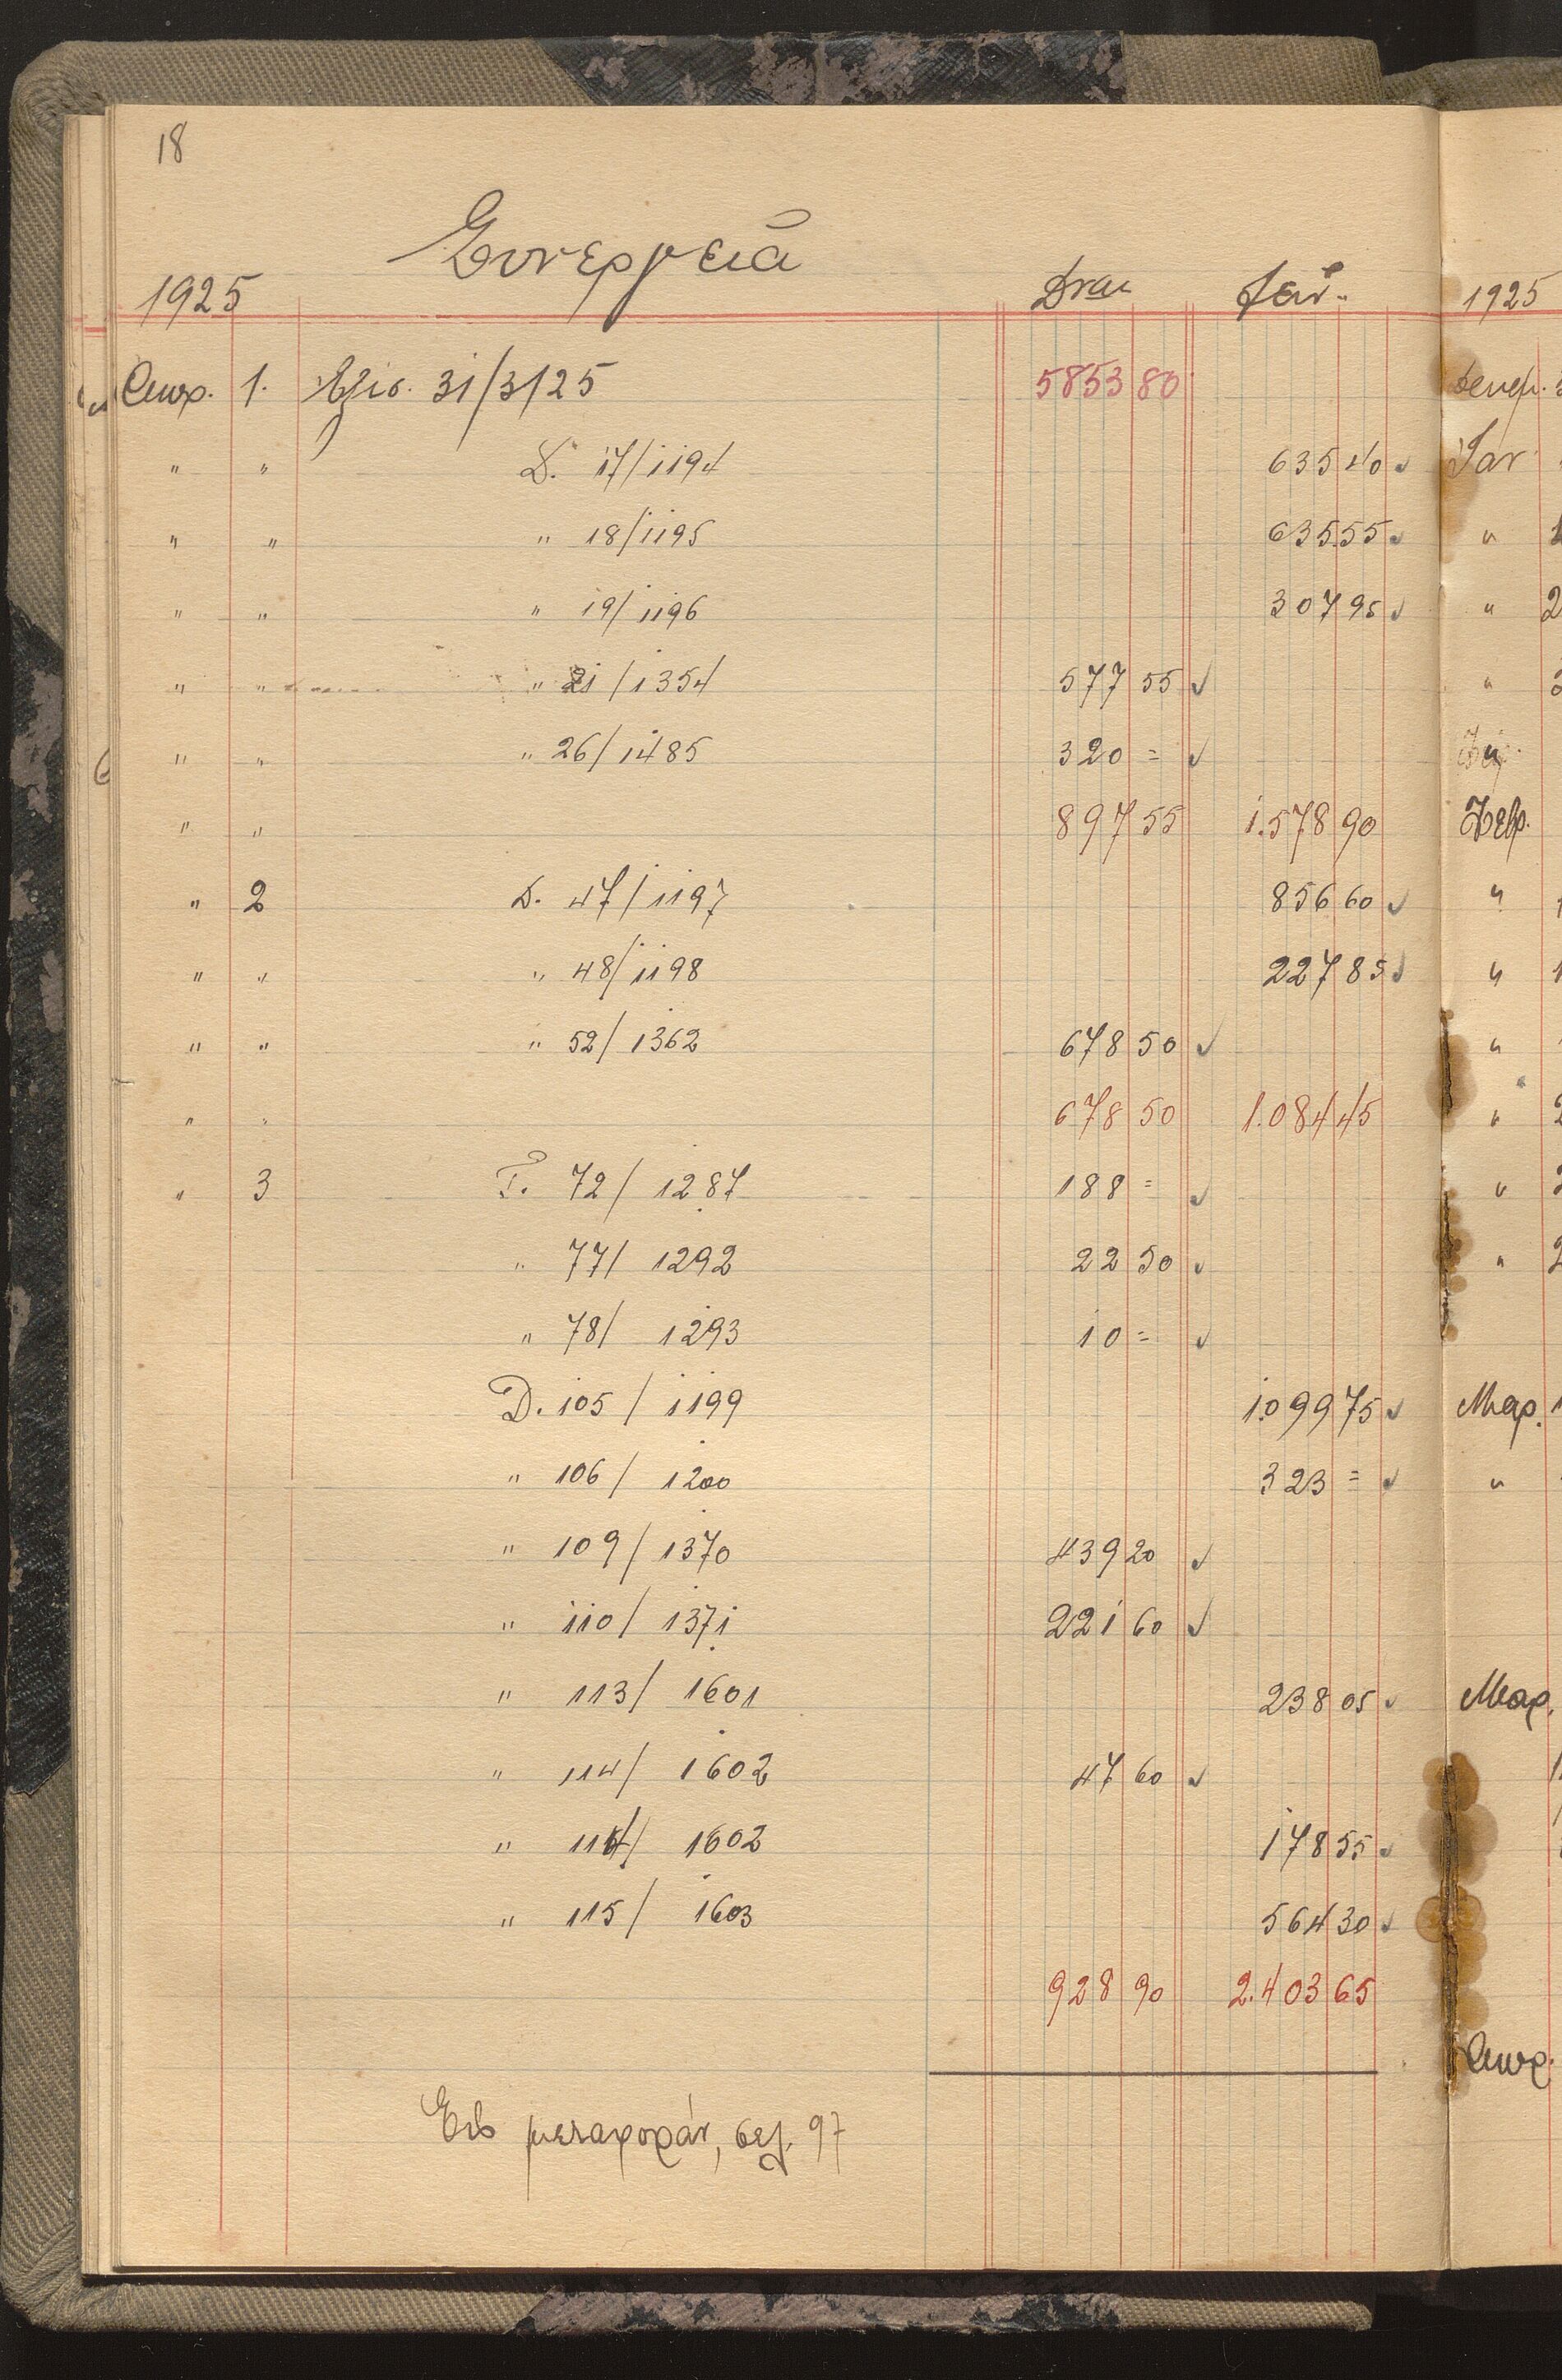 18
Συνεργεία
1925
Απρ. 1. Εξισ. 31/3/25 5853 80
" " Δ. 17/1194 635 40 ✓
" " " 18/1195 635 55 ✓
" " " 19/1196 307 95 ✓
" " " 21/1354 577 55 ✓
" " " 26/1485 320 = ✓
" " 897 55 1.578 90
" 2 Δ. 47/1197 856 60 ✓
" " " 48/1198 227 85 ✓
" " " 52/1362 678 50 ✓
" " 678 50 1.084 45
" 3 Τ. 72/1287 188 = ✓
" 77/1292 22 50 ✓
" 78/1293 10 = ✓
D. 105/1199 1.099 75 ✓
" 106/1200 323 = ✓
" 109/1370 439 20 ✓
" 110/1371 221 60 ✓
" 113/1601 238 05 ✓
" 114/1602 47 60 ✓
" 114/1602 178 55 ✓
" 115/1603 564 30 ✓
928 90 2.403 65
Εις μεταφοράν, σελ. 97
1925
Δεκεμ.
Ιαν
" 1
" 2
"
Φεβρ.
"
"
"
" 2
"
"
Μαρ. 1
"
Μαρ.
Απρ.